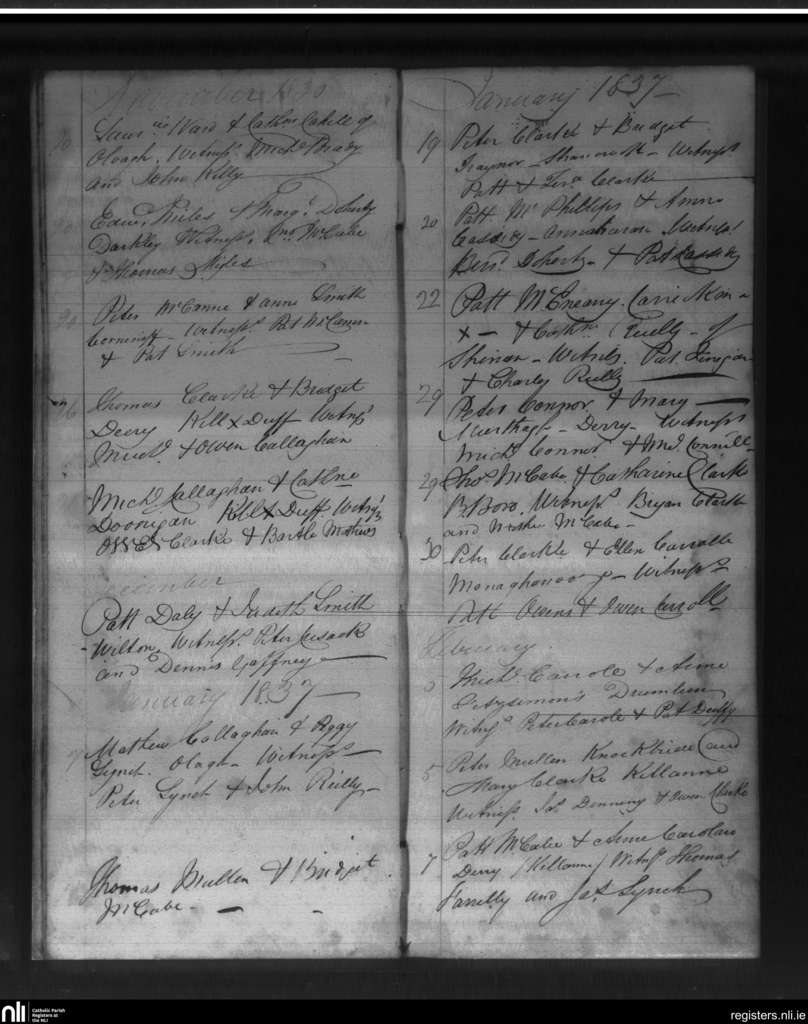 November 1836
20 Laurce Ward & Cathn Cahill of
Cloagh. Witness. Michl Brady
and John Kelly
Edwd Miles & Margt Doherty
Darkley Witness, Jno McCabe
& Thomas Miles
Peter McCanne & Anne Smith
Witness Pat McCann
& Pat Smith
26 Thomas Clarke & Bridget
Deery Kill x Duff Witns
Michl & Owen Callaghan
Michl Callaghan & Cathne
Doonigan Kill x Duff Witns
Clarke & Bartle Mathews
December
Patt Daly & Judath Smith
Wilton, Witness. Peter Cusack
and Dennis Gaffney
January 1837
Mathew Callaghan & Peggy
Lynch. Clagh. Witness
Peter Lynch & John Reilly
Thomas Mullen & Bridget
McCabe
January 1837
19 Peter Clarke & Bridget
Traynor Witness
Patt & Clarke
20 Patt McPhillips & Anne
Cassidy Witness
Bernd Doherty & Pat Cassidy
22 Patt McEneany. Carrickm
x & Cathn Reilly of
Shinan Witness. Pat Finigan
& Charley Reilly
29 Peter Connor & Mary
Murthagh Derry Witness
Michl Connor & Ml. Connell
29 Thos McCabe & Catharine Clarke
Witness. Bryan Clarke
and McCabe
30 Peter Clarke & Ellen Carrolle
Witness
Patt Owens & Owen Carroll
February
5 Michl Carrole & Anne
Fitzsimons Drumlion
Witns Peter Carole & Pat Duffy
5 Peter Mullen Knockbride and
Mary Clarke Killanne
Witness. Jas Dennin & Owen Clarke
7 Patt McCabe & Anne Carolan
Derry (Killanne) Witns Thomas
Farrelly and Jas Lynch
nli Catholic Parish
Registers at
the NLI
registers.nli.ie